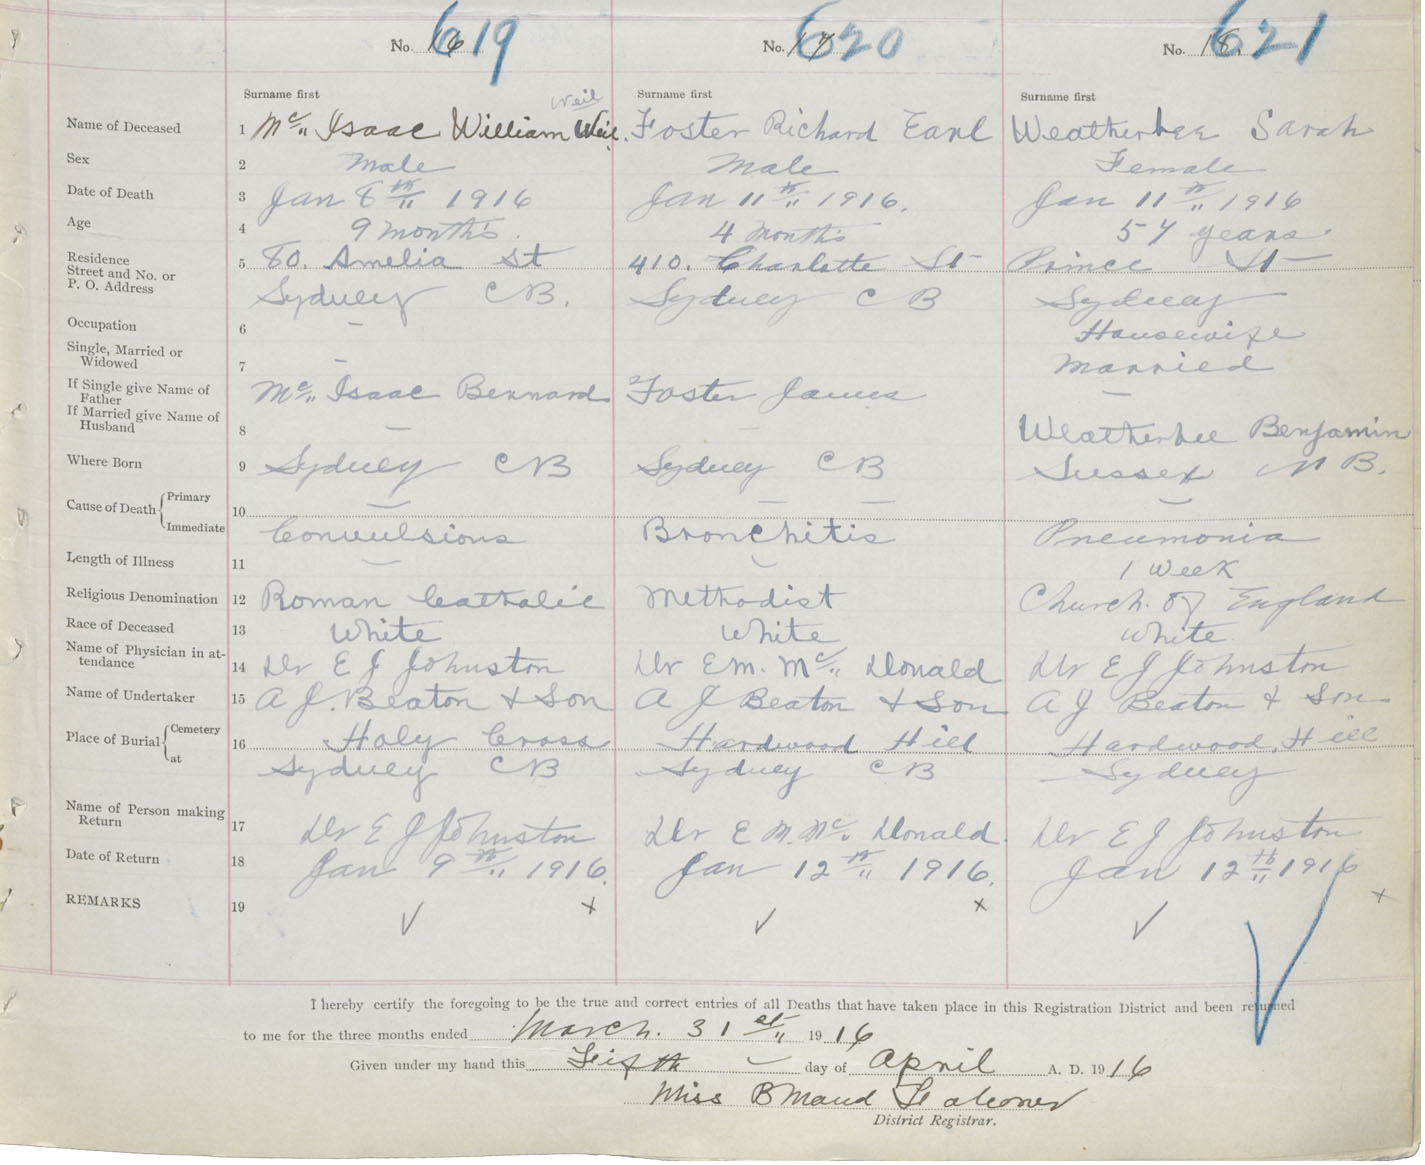 No. 16 619 No. 17 620 No. 18. 621
Surname first Surname first Surname first
Weil
Name of Deceased 1 Mc Isaac William Weil. Foster Richard Earl Weatherbee Sarah
Sex 2 Male Male Female
Date of Death 3 Jan 8th 1916 Jan 11th 1916. Jan 11th 1916
Age 4 9 months. 4 months 57 years
Residence 5 80. Amelia St 410. Charlotte St Prince St
Street and No. or
P. O. Address Sydney CB. Sydney CB Sydney
Occupation 6 – Housewife
Single, Married or
Widowed 7 – Married
If Single give Name of
Father Mc Isaac Bernard Foster James –
If Married give Name of
Husband 8 – – Weatherbee Benjamin
Where Born 9 Sydney CB Sydney CB Sussex N B.
Cause of Death { Primary 10 – – – –
Immediate Convulsions Bronchitis Pneumonia
Length of Illness 11 – – 1 Week
Religious Denomination 12 Roman Catholic Methodist Church. of England
Race of Deceased 13 White White White.
Name of Physician in at-
tendance 14 Dr E J Johnston Dr E M. Mc Donald Dr E J Johnston
Name of Undertaker 15 A J. Beaton & Son A J Beaton & Son A J Beaton & Son
Place of Burial { Cemetery 16 Holy Cross Hardwood Hill Hardwood. Hill
at Sydney CB Sydney CB Sydney
Name of Person making
Return 17 Dr E J Johnston Dr E M. Mc Donald. Dr E J Johnston
Date of Return 18 Jan 9th 1916. Jan 12th 1916. Jan 12th 1916
REMARKS 19 ✓ x ✓ x ✓ x
I hereby certify the foregoing to be the true and correct entries of all Deaths that have taken place in this Registration District and been returned
to me for the three months ended March. 31st 1916
Given under my hand this Fifth day of April A. D. 1916
Miss B Maud Falconer
District Registrar.